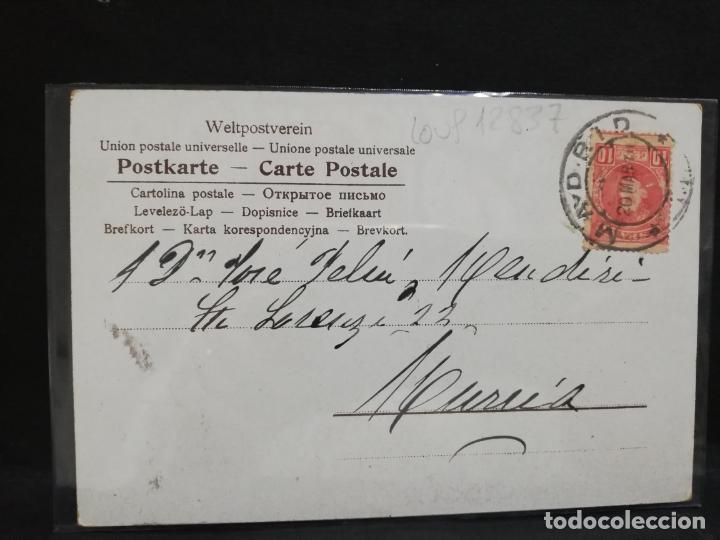 Weltpostverein
Union postale universelle — Unione postale universale
Postkarte — Carte Postale
Cartolina postale — Открытое письмо
Levelező-Lap — Dopisnice — Briefkaart
Brefkort — Karta korespondencyjna — Brevkort.
12837
MADRID
20 MAR
10
José
Sn Lorenzo 22
Murcia
todocoleccion